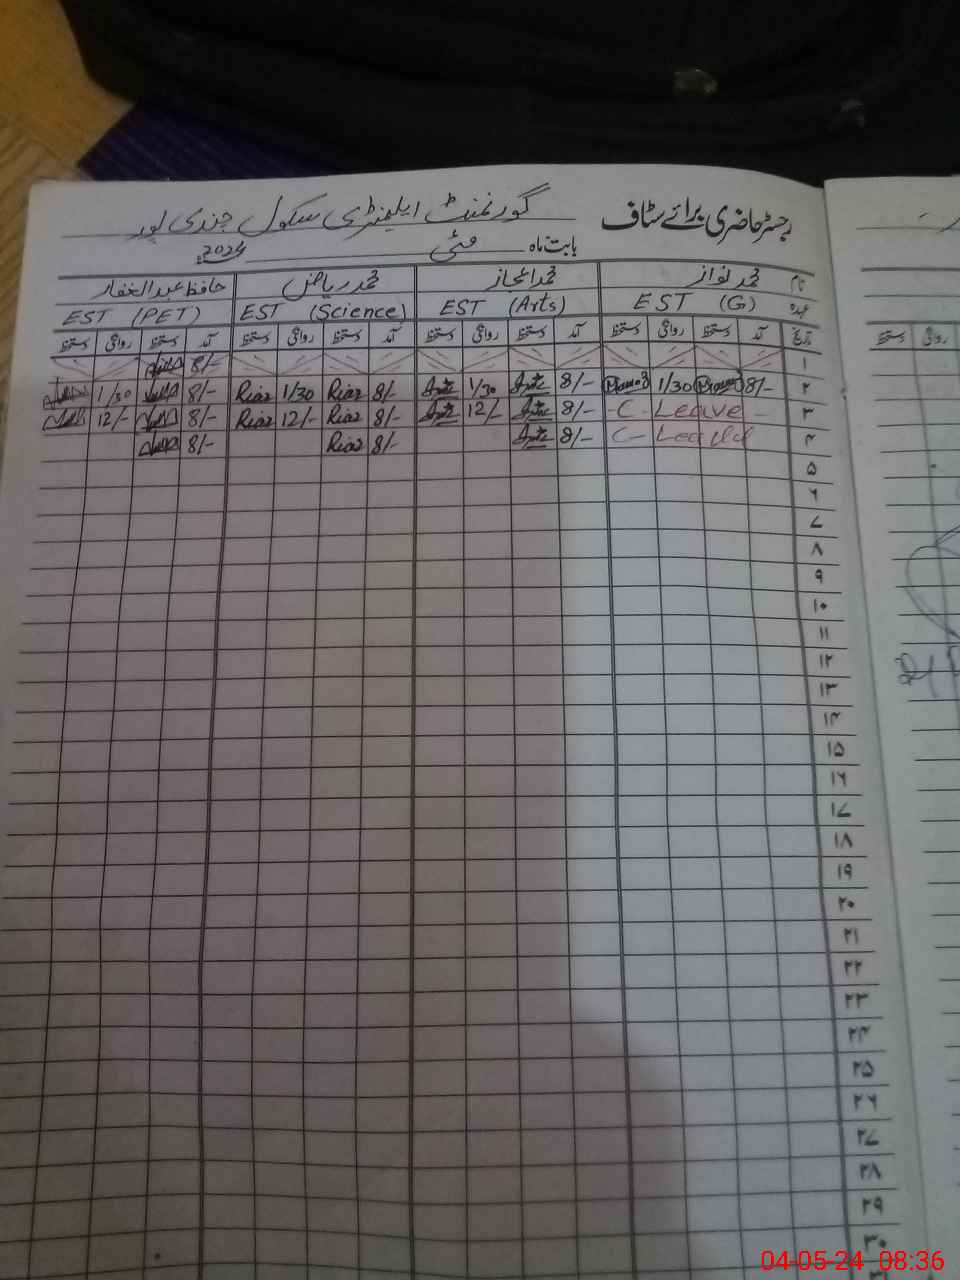 رجسٹر حاضری برائے سٹاف گورنمنٹ ایلیمنٹری سکول چندی پور
بابت ماہ مئی 2024ء
نام محمد نواز محمد اعجاز محمد ریاض حافظ عبدالغفار
عہدہ EST (G) EST (Arts) EST (Science) EST (PET)
تاریخ آمد دستخط روانگی دستخط آمد دستخط روانگی دستخط آمد دستخط روانگی دستخط آمد دستخط روانگی دستخط
۱ 8/-
۲ 8/- 1/30 8/- 1/30 8/- Riaz 1/30 Riaz 8/- 1/30
۳ C- Leave - 8/- 12/- 8/- Riaz 12/- Riaz 8/- 12/-
۴ C- Leave 8/- 8/- Riaz 8/-
۵
۶
۷
۸
۹
۱۰
۱۱
۱۲
۱۳
۱۴
۱۵
۱۶
۱۷
۱۸
۱۹
۲۰
۲۱
۲۲
۲۳
۲۴
۲۵
۲۶
۲۷
۲۸
۲۹
۳۰
04-05-24 08:36